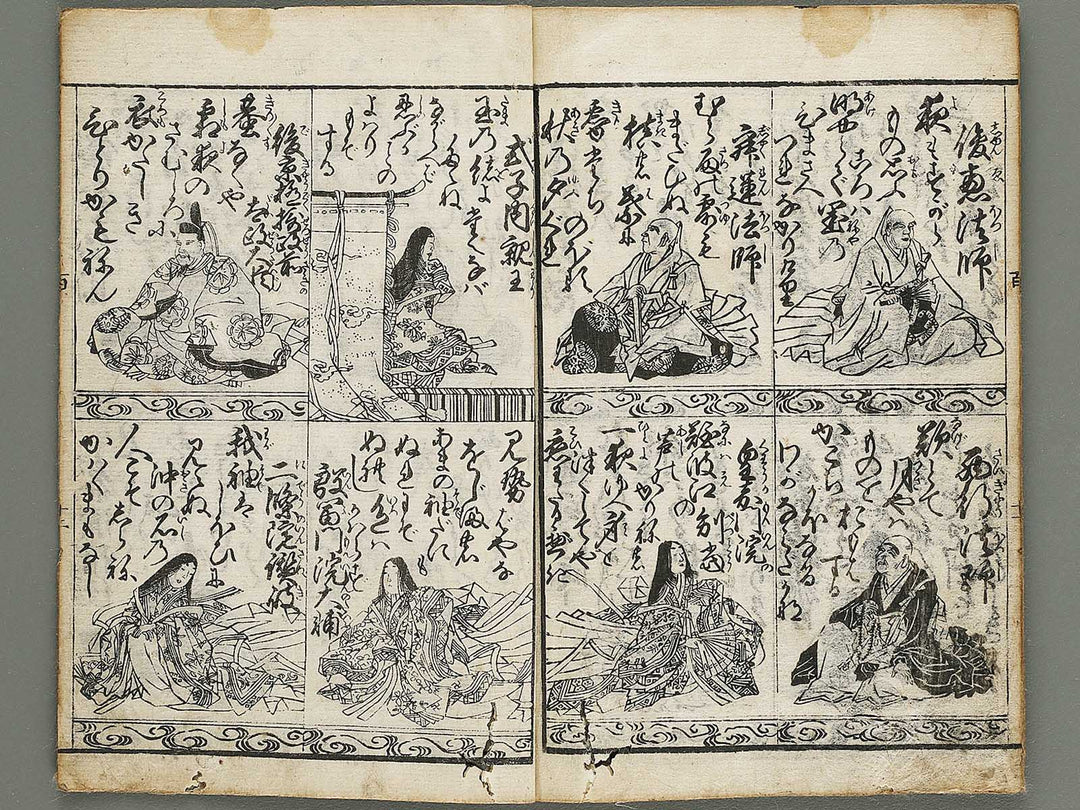 俊恵法師
夜もすがら
もの思ふ
ころハ
明やらで
閨の
ひまさへ
つれなかりけり
西行法師
歎けとて
月やハ
ものを
おもはする
かこちがほなる
わがなみだかな
寂蓮法師
むら雨の露も
まだひぬ
槙の葉に
霧立のぼる
秋の夕ぐれ
皇嘉門院
別当
難波江の
芦のかりねの
一夜ゆへ身を
つくしてや
恋わたるべき
式子内親王
玉の緒よ
たえなば
たえね
ながらへば
忍ぶることの
よはりもぞ
する
殷富門院大輔
見勢ばやな
をじまの
あまの袖だにも
ぬれにぞ
ぬれし色ハ
かはらず
後京極摂政前
太政大臣
蛬なくや
霜夜の
さむしろに
衣かたしき
ひとりかもねん
二條院讃岐
我袖ハ
しほひに
見えぬ
沖の石の
人こそしらね
かハくまもなし